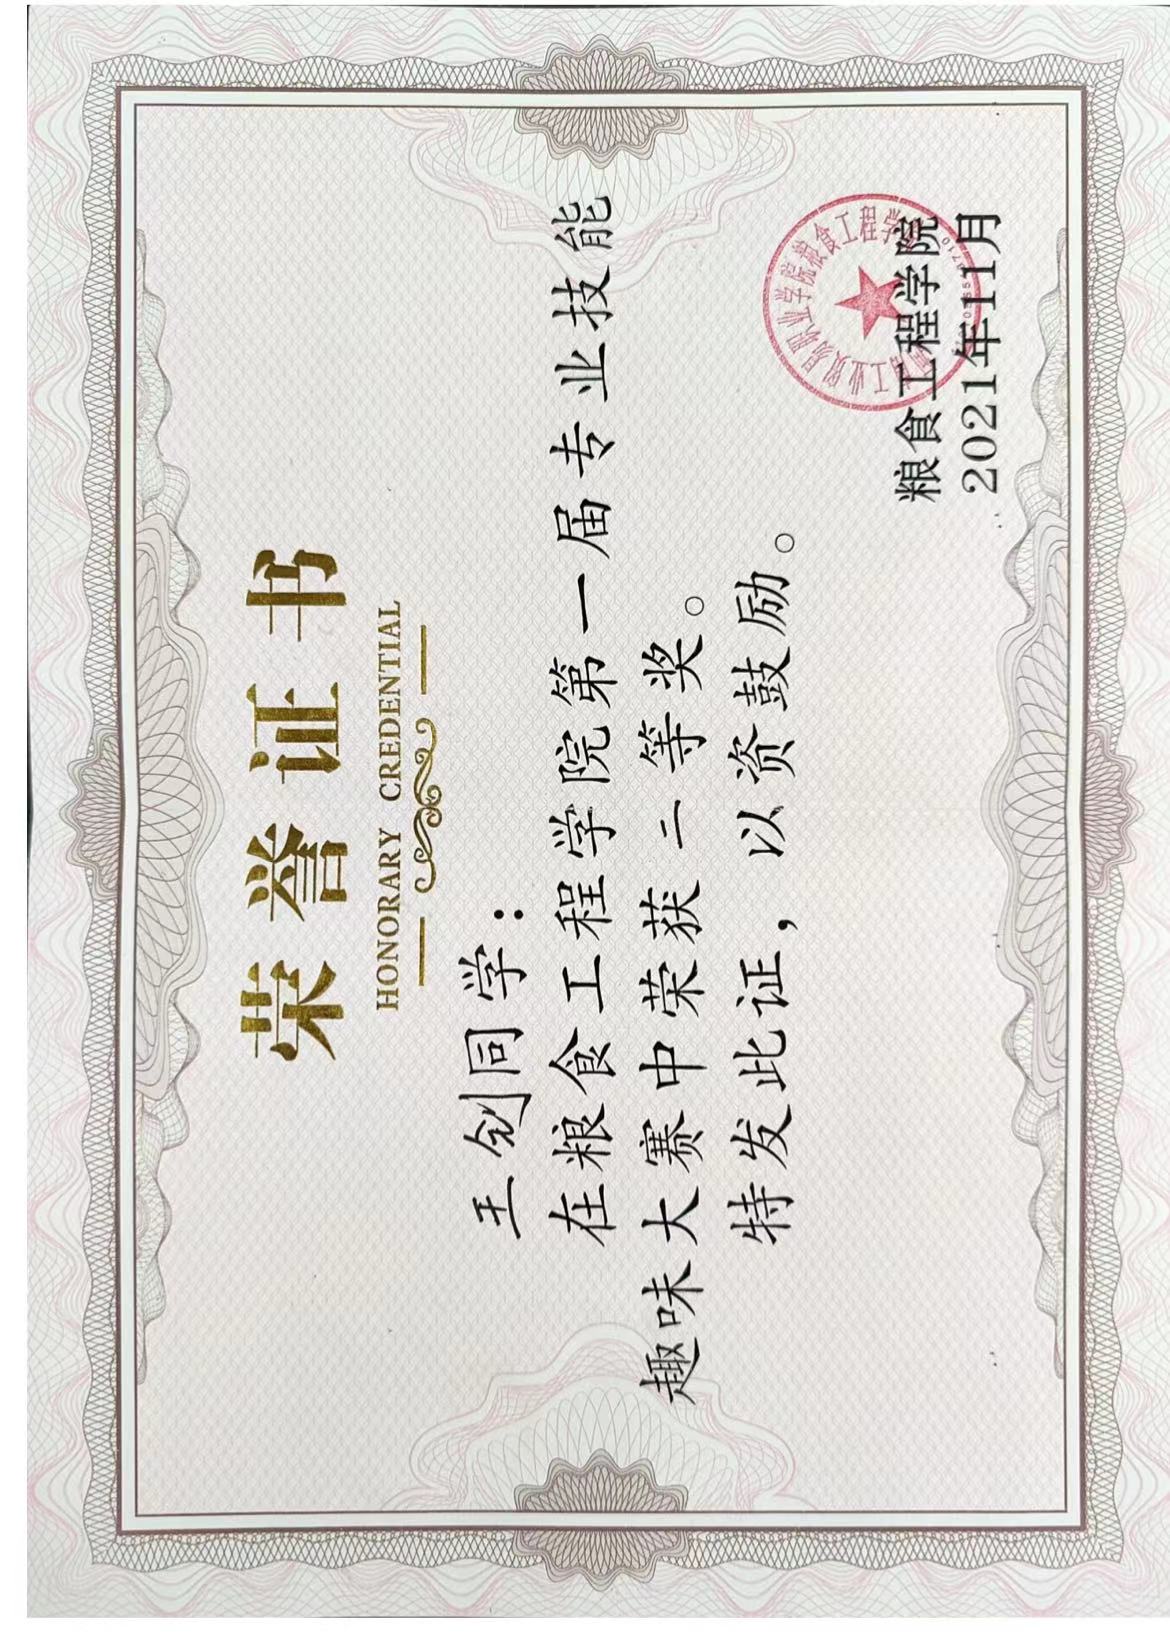 荣誉证书
HONORARY CREDENTIAL
王创同学：
在粮食工程学院第一届专业技能
趣味大赛中荣获二等奖。
特发此证，以资鼓励。
粮食工程学院
2021年11月
工业贸易职业学院粮食工程学